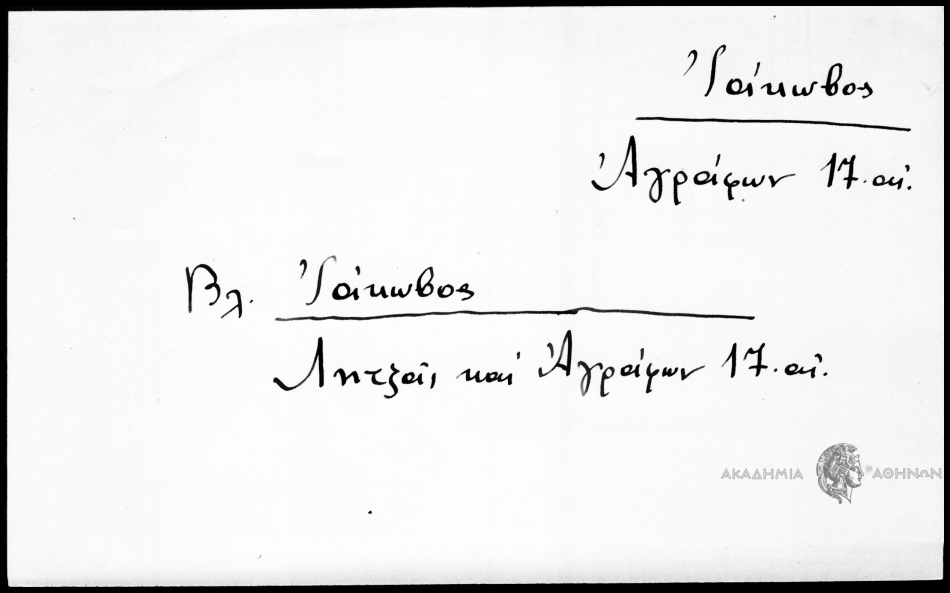 Ἰάκωβος
Ἀγράφων 17. αἰ.
Βλ. Ἰάκωβος
Λητζᾶς καί Ἀγράφων 17. αἰ.
ΑΚΑΔΗΜΙΑ ΑΘΗΝΩΝ